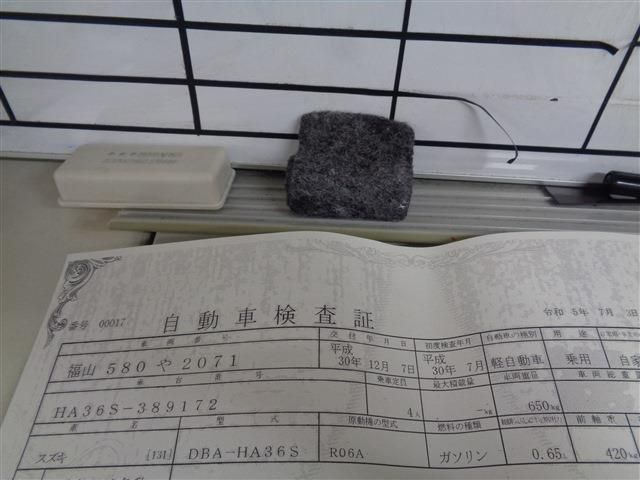 番号 00017
自動車検査証
令和 5年 7月 3日
車両番号
交付年月日
初度検査年月
自動車の種別
用途
福山 580 や 2071
平成 30年 12月 7日
平成 30年 7月
軽自動車
乗用
自家
車台番号
乗車定員
最大積載量
車両重量
車両総重
HA36S-389172
4人
-kg
650kg
車名
型式
原動機の型式
燃料の種類
前軸重
スズキ [131]
DBA-HA36S
R06A
ガソリン
0.65
420